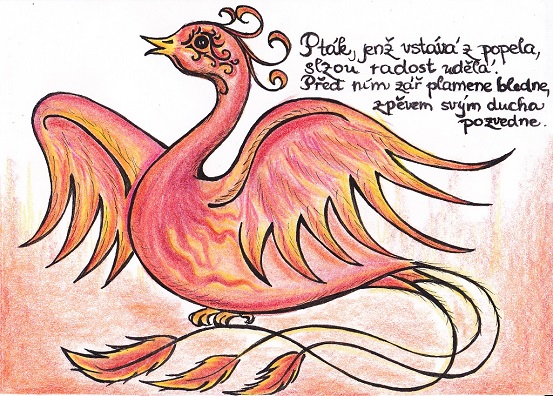 Pták, jenž vstává z popela,
slzou radost udělá.
Před ním zář plamene bledne,
zpěvem svým ducha
pozvedne.